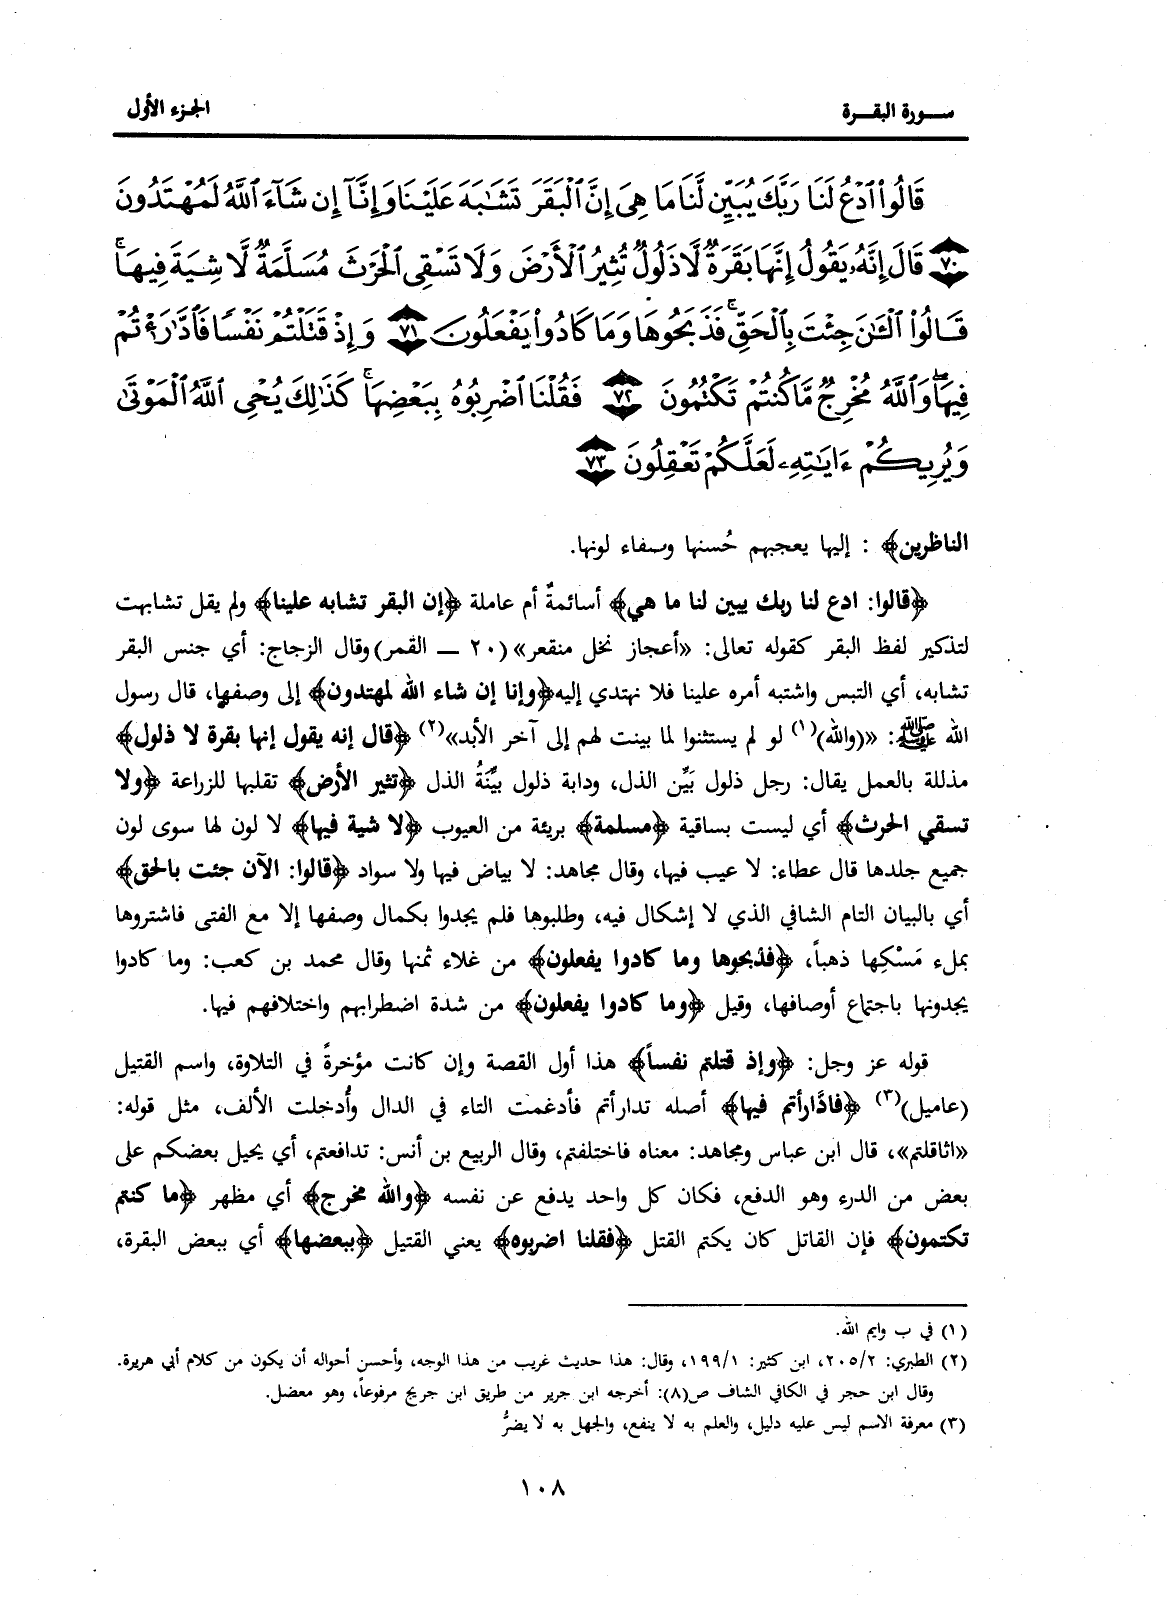 سورة البقرة
الجزء الأول
قَالُوا۟ ٱدۡعُ لَنَا رَبَّكَ يُبَيِّن لَّنَا مَا هِىَ إِنَّ ٱلۡبَقَرَ تَشَٰبَهَ عَلَيۡنَا وَإِنَّآ إِن شَآءَ ٱللَّهُ لَمُهۡتَدُونَ
٧٠ قَالَ إِنَّهُۥ يَقُولُ إِنَّهَا بَقَرَةٌ لَّا ذَلُولٌ تُثِيرُ ٱلۡأَرۡضَ وَلَا تَسۡقِى ٱلۡحَرۡثَ مُسَلَّمَةٌ لَّا شِيَةَ فِيهَاۚ
قَالُوا۟ ٱلۡـَٰٔنَ جِئۡتَ بِٱلۡحَقِّۚ فَذَبَحُوهَا وَمَا كَادُوا۟ يَفۡعَلُونَ ٧١ وَإِذۡ قَتَلۡتُمۡ نَفۡسًا فَٱدَّٰرَٰٔتُمۡ
فِيهَاۖ وَٱللَّهُ مُخۡرِجٌ مَّا كُنتُمۡ تَكۡتُمُونَ ٧٢ فَقُلۡنَا ٱضۡرِبُوهُ بِبَعۡضِهَاۚ كَذَٰلِكَ يُحۡىِ ٱللَّهُ ٱلۡمَوۡتَىٰ
وَيُرِيكُمۡ ءَايَٰتِهِۦ لَعَلَّكُمۡ تَعۡقِلُونَ ٧٣
الناظرين﴾ : إليها يعجبهم حُسنها وصفاء لونها.
﴿قالوا: ادع لنا ربك يبين لنا ما هي﴾ أسائمةٌ أم عاملة ﴿إن البقر تشابه علينا﴾ ولم يقل تشابهت
لتذكير لفظ البقر كقوله تعالى: «أعجاز نخل منقعر» (٢٠ ــ القمر) وقال الزجاج: أي جنس البقر
تشابه، أي التبس واشتبه أمره علينا فلا نهتدي إليه ﴿وإنا إن شاء الله لمهتدون﴾ إلى وصفها، قال رسول
الله ﷺ: «(والله)(١) لو لم يستثنوا لما بينت لهم إلى آخر الأبد»(٢) ﴿قال إنه يقول إنها بقرة لا ذلول﴾
مذللة بالعمل يقال: رجل ذلول بَيِّن الذل، ودابة ذلول بيِّنَةُ الذل ﴿تثير الأرض﴾ تقلبها للزراعة ﴿ولا
تسقي الحرث﴾ أي ليست بساقية ﴿مسلمة﴾ بريئة من العيوب ﴿لا شية فيها﴾ لا لون لها سوى لون
جميع جلدها قال عطاء: لا عيب فيها، وقال مجاهد: لا بياض فيها ولا سواد ﴿قالوا: الآن جئت بالحق﴾
أي بالبيان التام الشافي الذي لا إشكال فيه، وطلبوها فلم يجدوا بكمال وصفها إلا مع الفتى فاشتروها
بملء مَسْكِها ذهباً، ﴿فذبحوها وما كادوا يفعلون﴾ من غلاء ثمنها وقال محمد بن كعب: وما كادوا
يجدونها باجتماع أوصافها، وقيل ﴿وما كادوا يفعلون﴾ من شدة اضطرابهم واختلافهم فيها.
قوله عز وجل: ﴿وإذ قتلتم نفساً﴾ هذا أول القصة وإن كانت مؤخرةً في التلاوة، واسم القتيل
(عاميل)(٣) ﴿فادَّارأتم فيها﴾ أصله تدارأتم فأدغمت التاء في الدال وأُدخلت الألف، مثل قوله:
«اثاقلتم»، قال ابن عباس ومجاهد: معناه فاختلفتم، وقال الربيع بن أنس: تدافعتم، أي يحيل بعضكم على
بعض من الدرء وهو الدفع، فكان كل واحد يدفع عن نفسه ﴿والله مخرج﴾ أي مظهر ﴿ما كنتم
تكتمون﴾ فإن القاتل كان يكتم القتل ﴿فقلنا اضربوه﴾ يعني القتيل ﴿ببعضها﴾ أي ببعض البقرة،
(١) في ب وايم الله.
(٢) الطبري: ٢٠٥/٢، ابن كثير: ١٩٩/١، وقال: هذا حديث غريب من هذا الوجه، وأحسن أحواله أن يكون من كلام أبي هريرة.
وقال ابن حجر في الكافي الشاف ص(٨): أخرجه ابن جرير من طريق ابن جريج مرفوعاً، وهو معضل.
(٣) معرفة الاسم ليس عليه دليل، والعلم به لا ينفع، والجهل به لا يضرُّ
١٠٨